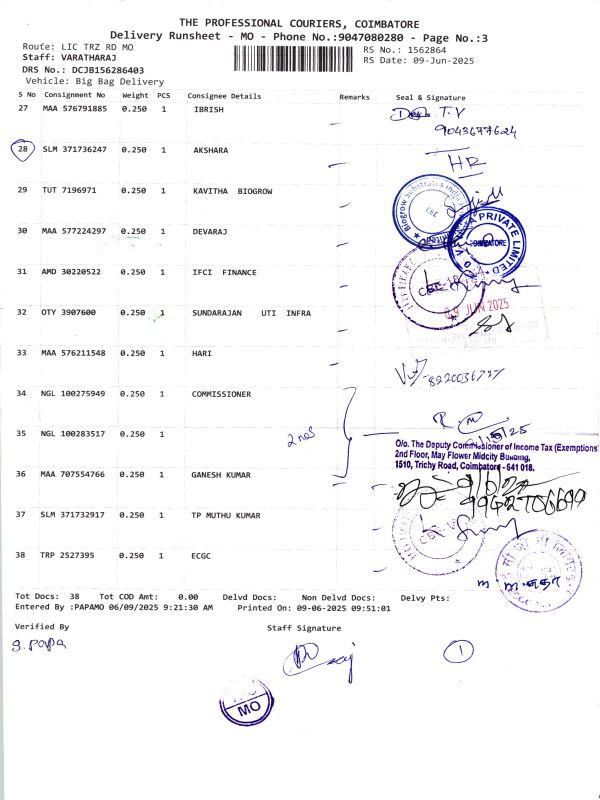 THE PROFESSIONAL COURIERS, COIMBATORE
Delivery Runsheet - MO - Phone No.:9047080280 - Page No.:3
Route: LIC TRZ RD MO
RS No.: 1562864
Staff: VARATHARAJ
RS Date: 09-Jun-2025
DRS No.: DCJB156286403
Vehicle: Big Bag Delivery
S No Consignment No Weight PCS Consignee Details Remarks Seal & Signature
27 MAA 576791885 0.250 1 IBRISH
T.V
9043677624
28 SLM 371736247 0.250 1 AKSHARA
HR
29 TUT 7196971 0.250 1 KAVITHA BIOGROW
Biogrow Substrates India
CBE
30 MAA 577224297 0.250 1 DEVARAJ
PRIVATE LIMITED
COIMBATORE
31 AMD 30220522 0.250 1 IFCI FINANCE
09 JUN 2025
32 OTY 3907600 0.250 1 SUNDARAJAN UTI INFRA
33 MAA 576211548 0.250 1 HARI
34 NGL 100275949 0.250 1 COMMISSIONER
35 NGL 100283517 0.250 1
2 nos
O/o. The Deputy Commissioner of Income Tax (Exemptions)
2nd Floor, May Flower Midcity Building,
1510, Trichy Road, Coimbatore - 641 018.
36 MAA 707554766 0.250 1 GANESH KUMAR
37 SLM 371732917 0.250 1 TP MUTHU KUMAR
38 TRP 2527395 0.250 1 ECGC
Tot Docs: 38 Tot COD Amt: 0.00 Delvd Docs: Non Delvd Docs: Delvy Pts:
Entered By :PAPAMO 06/09/2025 9:21:30 AM Printed On: 09-06-2025 09:51:01
Verified By
Staff Signature
S. PAPA
1
MO